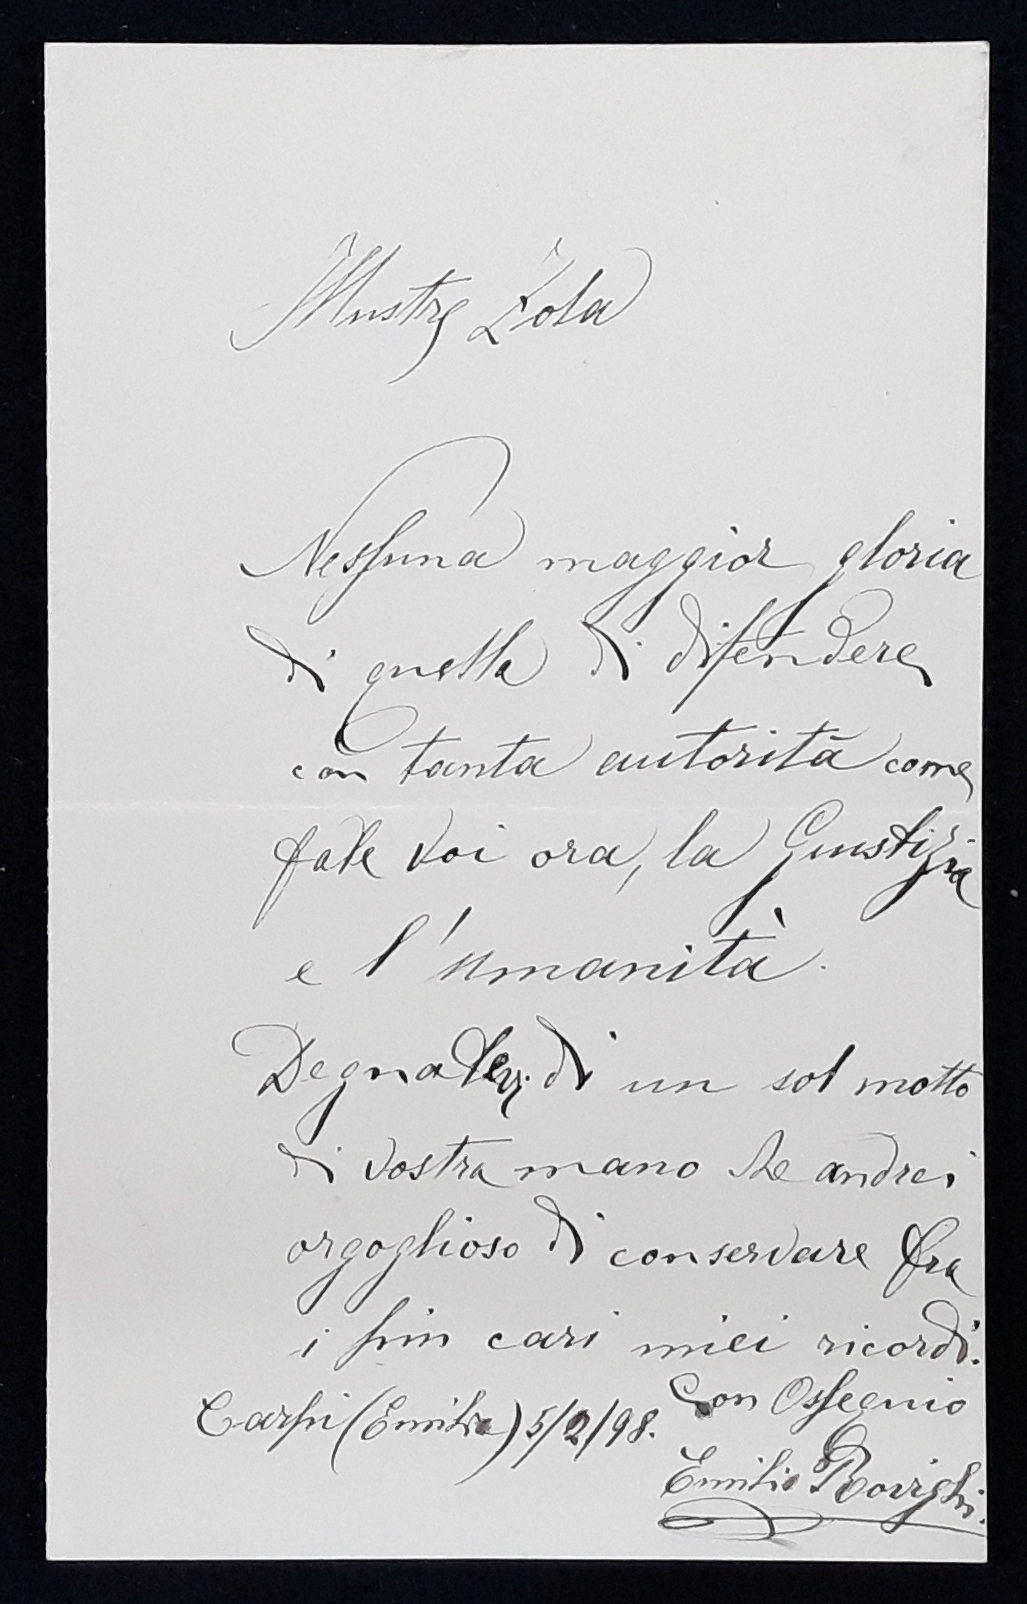 Illustre Zola
Nessuna maggior gloria
di quella di difendere
con tanta autorità come
fate voi ora, la Giustizia
e l'umanità.
Degnatevi di un sol motto
di vostra mano che andrei
orgoglioso di conservare fra
i più cari miei ricordi.
Con Ossequio
Carpi (Emilia) 5/2/98.
Emilio Rovighi.